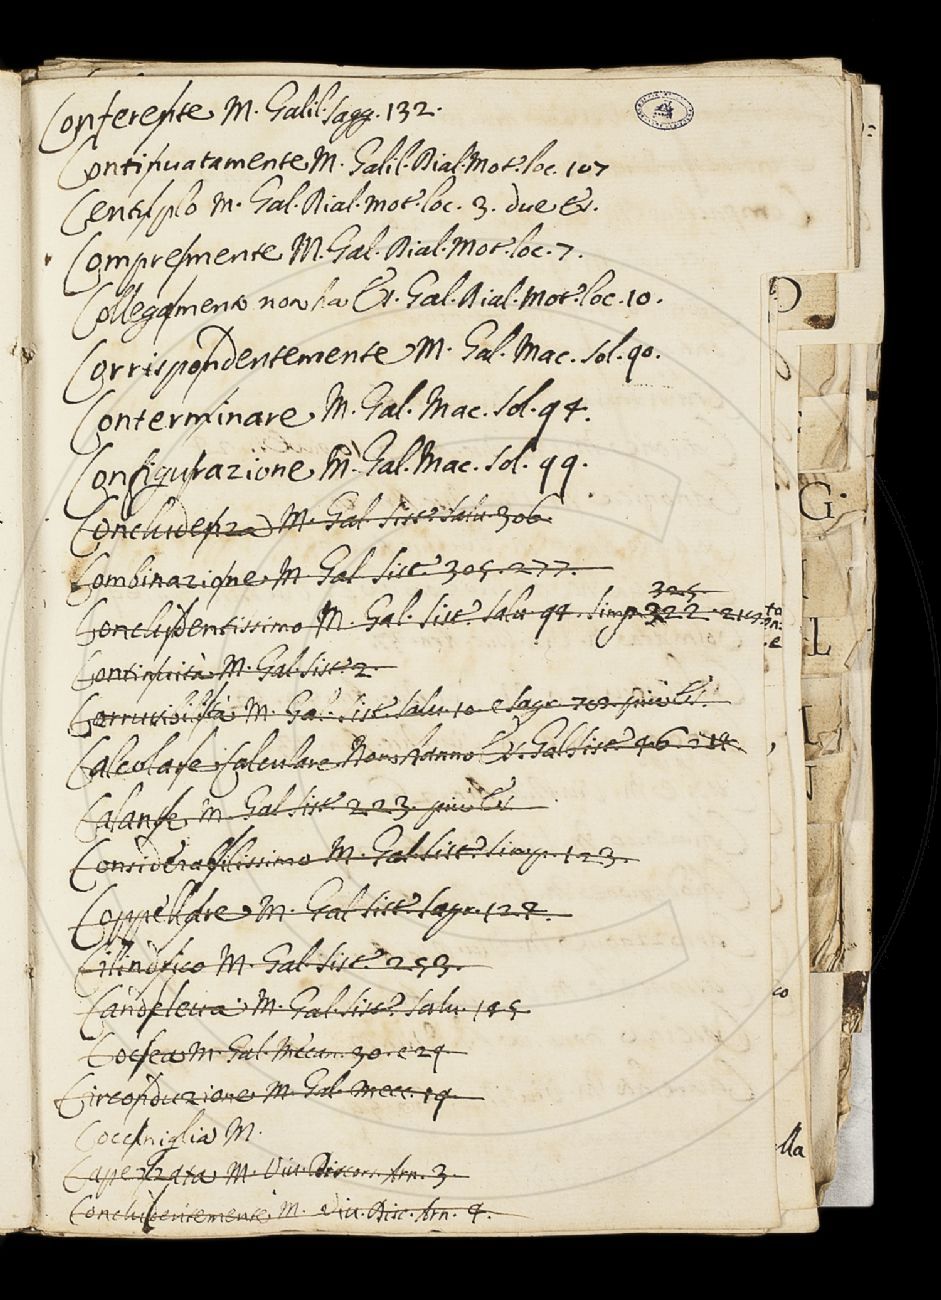 Conferente M. Galil. Sagg. 132.
Continuatamente M. Galil. Dial. Mot. loc. 107
Centuplo M. Gal. Dial. Mot. loc. 3. due Es.
Compresmente M. Gal. Dial. Mot. loc. 7.
Collegamento non ha Es. Gal. Dial. Mot. loc. 10.
Corrispondentemente M. Gal. Mac. Sol. 90.
Conterminare M. Gal. Mac. Sol. 94.
Configurazione M. Gal. Mac. Sol. 99.
Concludenza M. Gal. Sist. Salu. 306.
Combinazione M. Gal. Sist. 305. 277.
325.
Concludentissimo M. Gal. Sist. Salu. 94. Simp. 322.
Continuità M. Gal. Sist. 2.
M. Gal. Sist. Salu. 10 e Sagr. più Es.
Calcolare Calculare Non hanno Es. Gal. Sist. 46.
M. Gal. Sist. 223. più Es
Considerabilissimo M. Gal. Sist. Simp. 123.
M. Gal. Sist. Sagr. 124.
Cilindrico M. Gal. Sist. 253.
M. Gal. Sist. Salu. 195
Coclea M. Gal. Mecan. 30. e 29
Circonduzione M. Gal. Mecc. 19.
Cocciniglia M.
M. Viv. Discors. Arn. 3.
Concludentemente M. Viv. Disc. Arn. 4.
D
G.
L
lla